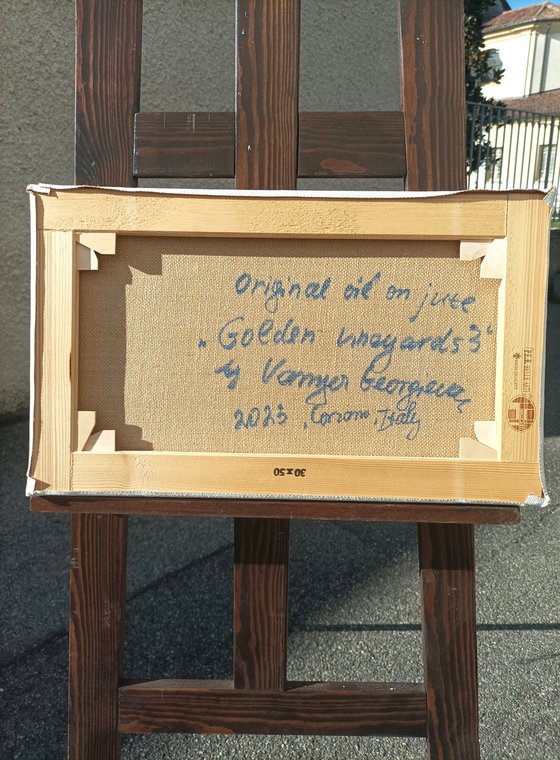 Original oil on jute
„Golden vineyards 3“
by Vamyer Georgieva
2023, Corzano, Italy
30x50